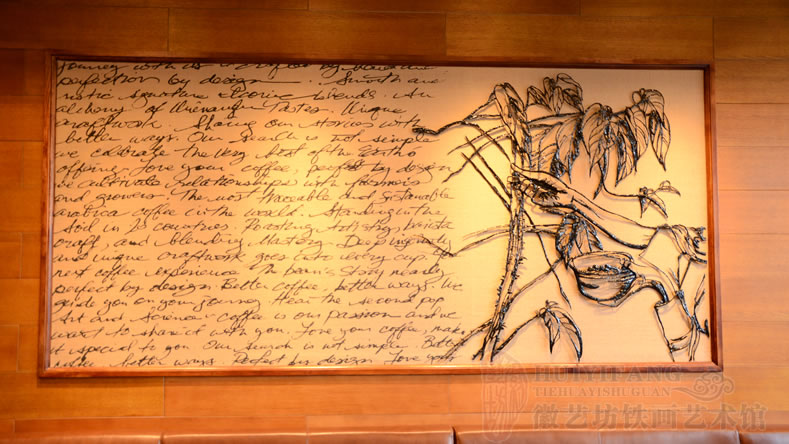 Journey with us
perfection by design Smooth and
rustic signature blends. An
alchemy of Tastes. Unique
craftwork. Sharing our stories with
better ways. Our search is not simple
we celebrate the very best of the Earth
offering. Love your coffee, perfect by design
we cultivate relationships with farmers
and growers. The most traceable and sustainable
arabica coffee in the world. Standing in the
Soil in 20 countries. Roasting Artistry, barista
craft, and blending Mastery. Deep ingenuity
and unique craftwork goes into every cup. The
next coffee experience. The bean's story nearly
perfect by design. Better coffee, better ways. We
guide you on your journey Hear the second pop
Art and Science coffee is our passion and we
want to share it with you. Love your coffee, make
it special to you Our search is not simple. Better
better ways. Perfect by design. Love your
HUIYIFANG
TIEHUAYISHUGUAN
徽艺坊铁画艺术馆